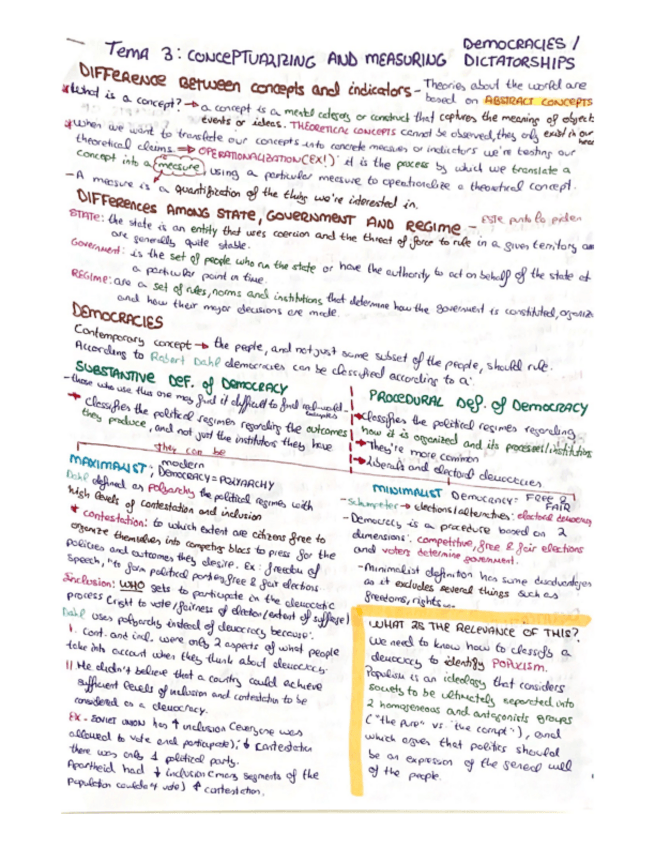 Tema 3: CONCEPTUALIZING AND MEASURING DEMOCRACIES / DICTATORSHIPS
DIFFERENCE BETWEEN concepts and indicators - Theories about the world are
based on ABSTRACT CONCEPTS
*What is a concept? → a concept is a mental category or construct that captures the meaning of objects
events or ideas. THEORETICAL CONCEPTS cannot be observed, they only exist in our
heads
*When we want to translate our concepts into concrete measures or indicators we're testing our
theoretical claims. ⇒ OPERATIONALIZATION (EX!) it is the process by which we translate a
concept into a measure, using a particular measure to operationalize a theoretical concept.
- A measure is a quantification of the thing we're interested in.
DIFFERENCES AMONG STATE, GOVERNMENT AND REGIME - Este punto lo piden
STATE: the state is an entity that uses coercion and the threat of force to rule in a given territory and
are generally quite stable.
Government: is the set of people who run the state or have the authority to act on behalf of the state at
a particular point in time.
REGIME: are a set of rules, norms and institutions that determine how the government is constituted, organiz
and how their major decisions are made.
DEMOCRACIES
Contemporary concept → the people, and not just some subset of the people, should rule.
According to Robert Dahl democracies can be classified according to a:
SUBSTANTIVE DEF. of DEMOCRACY
- those who use this one may find it difficult to find real-world
examples
→ Classifies the political regimes regarding the outcomes
they produce, and not just the institutions they have
they can be
PROCEDURAL DEF. of DEMOCRACY
→ Classifies the political regimes regarding
how it is organized and its processes/institutions
→ They're more common
→ Liberals and electoral democracies
MAXIMALIST: modern
DEMOCRACY = POLYARCHY
Dahl defined as polyarchy the political regimes with
high levels of contestation and inclusion
* contestation: to which extent are citizens free to
organize themselves into competing blocs to press for the
policies and outcomes they desire. Ex: freedom of
speech, "to form political parties, free & fair elections
Inclusion: WHO gets to participate in the democratic
process (right to vote/fairness of election/extent of suffrage)
Dahl uses polyarchy instead of democracy because:
I. Cont. and incl. were only 2 aspects of what people
take into account when they think about democracy.
II He didn't believe that a country could achieve
sufficient levels of inclusion and contestation to be
considered as a democracy.
EX - Soviet union has ↑ inclusion (everyone was
allowed to vote and participate), ↓ contestation
there was only 1 political party.
Apartheid had ↓ inclusion (many segments of the
population couldn't vote) ↑ contestation.
MINIMALIST DEMOCRACY: FREE & FAIR
- Schumpeter → elections/alternancies: electoral democracy
- Democracy is a procedure based on 2
dimensions: competitive, free & fair elections
and voters determine government.
- Minimalist definition has some disadvantages
as it excludes several things such as
freedoms, rights...
WHAT IS THE RELEVANCE OF THIS?
We need to know how to classify a
democracy to identify POPULISM.
Populism is an ideology that considers
society to be ultimately separated into
2 homogeneous and antagonistic groups
("the pure" vs "the corrupt"), and
which argues that politics should
be an expression of the general will
of the people.